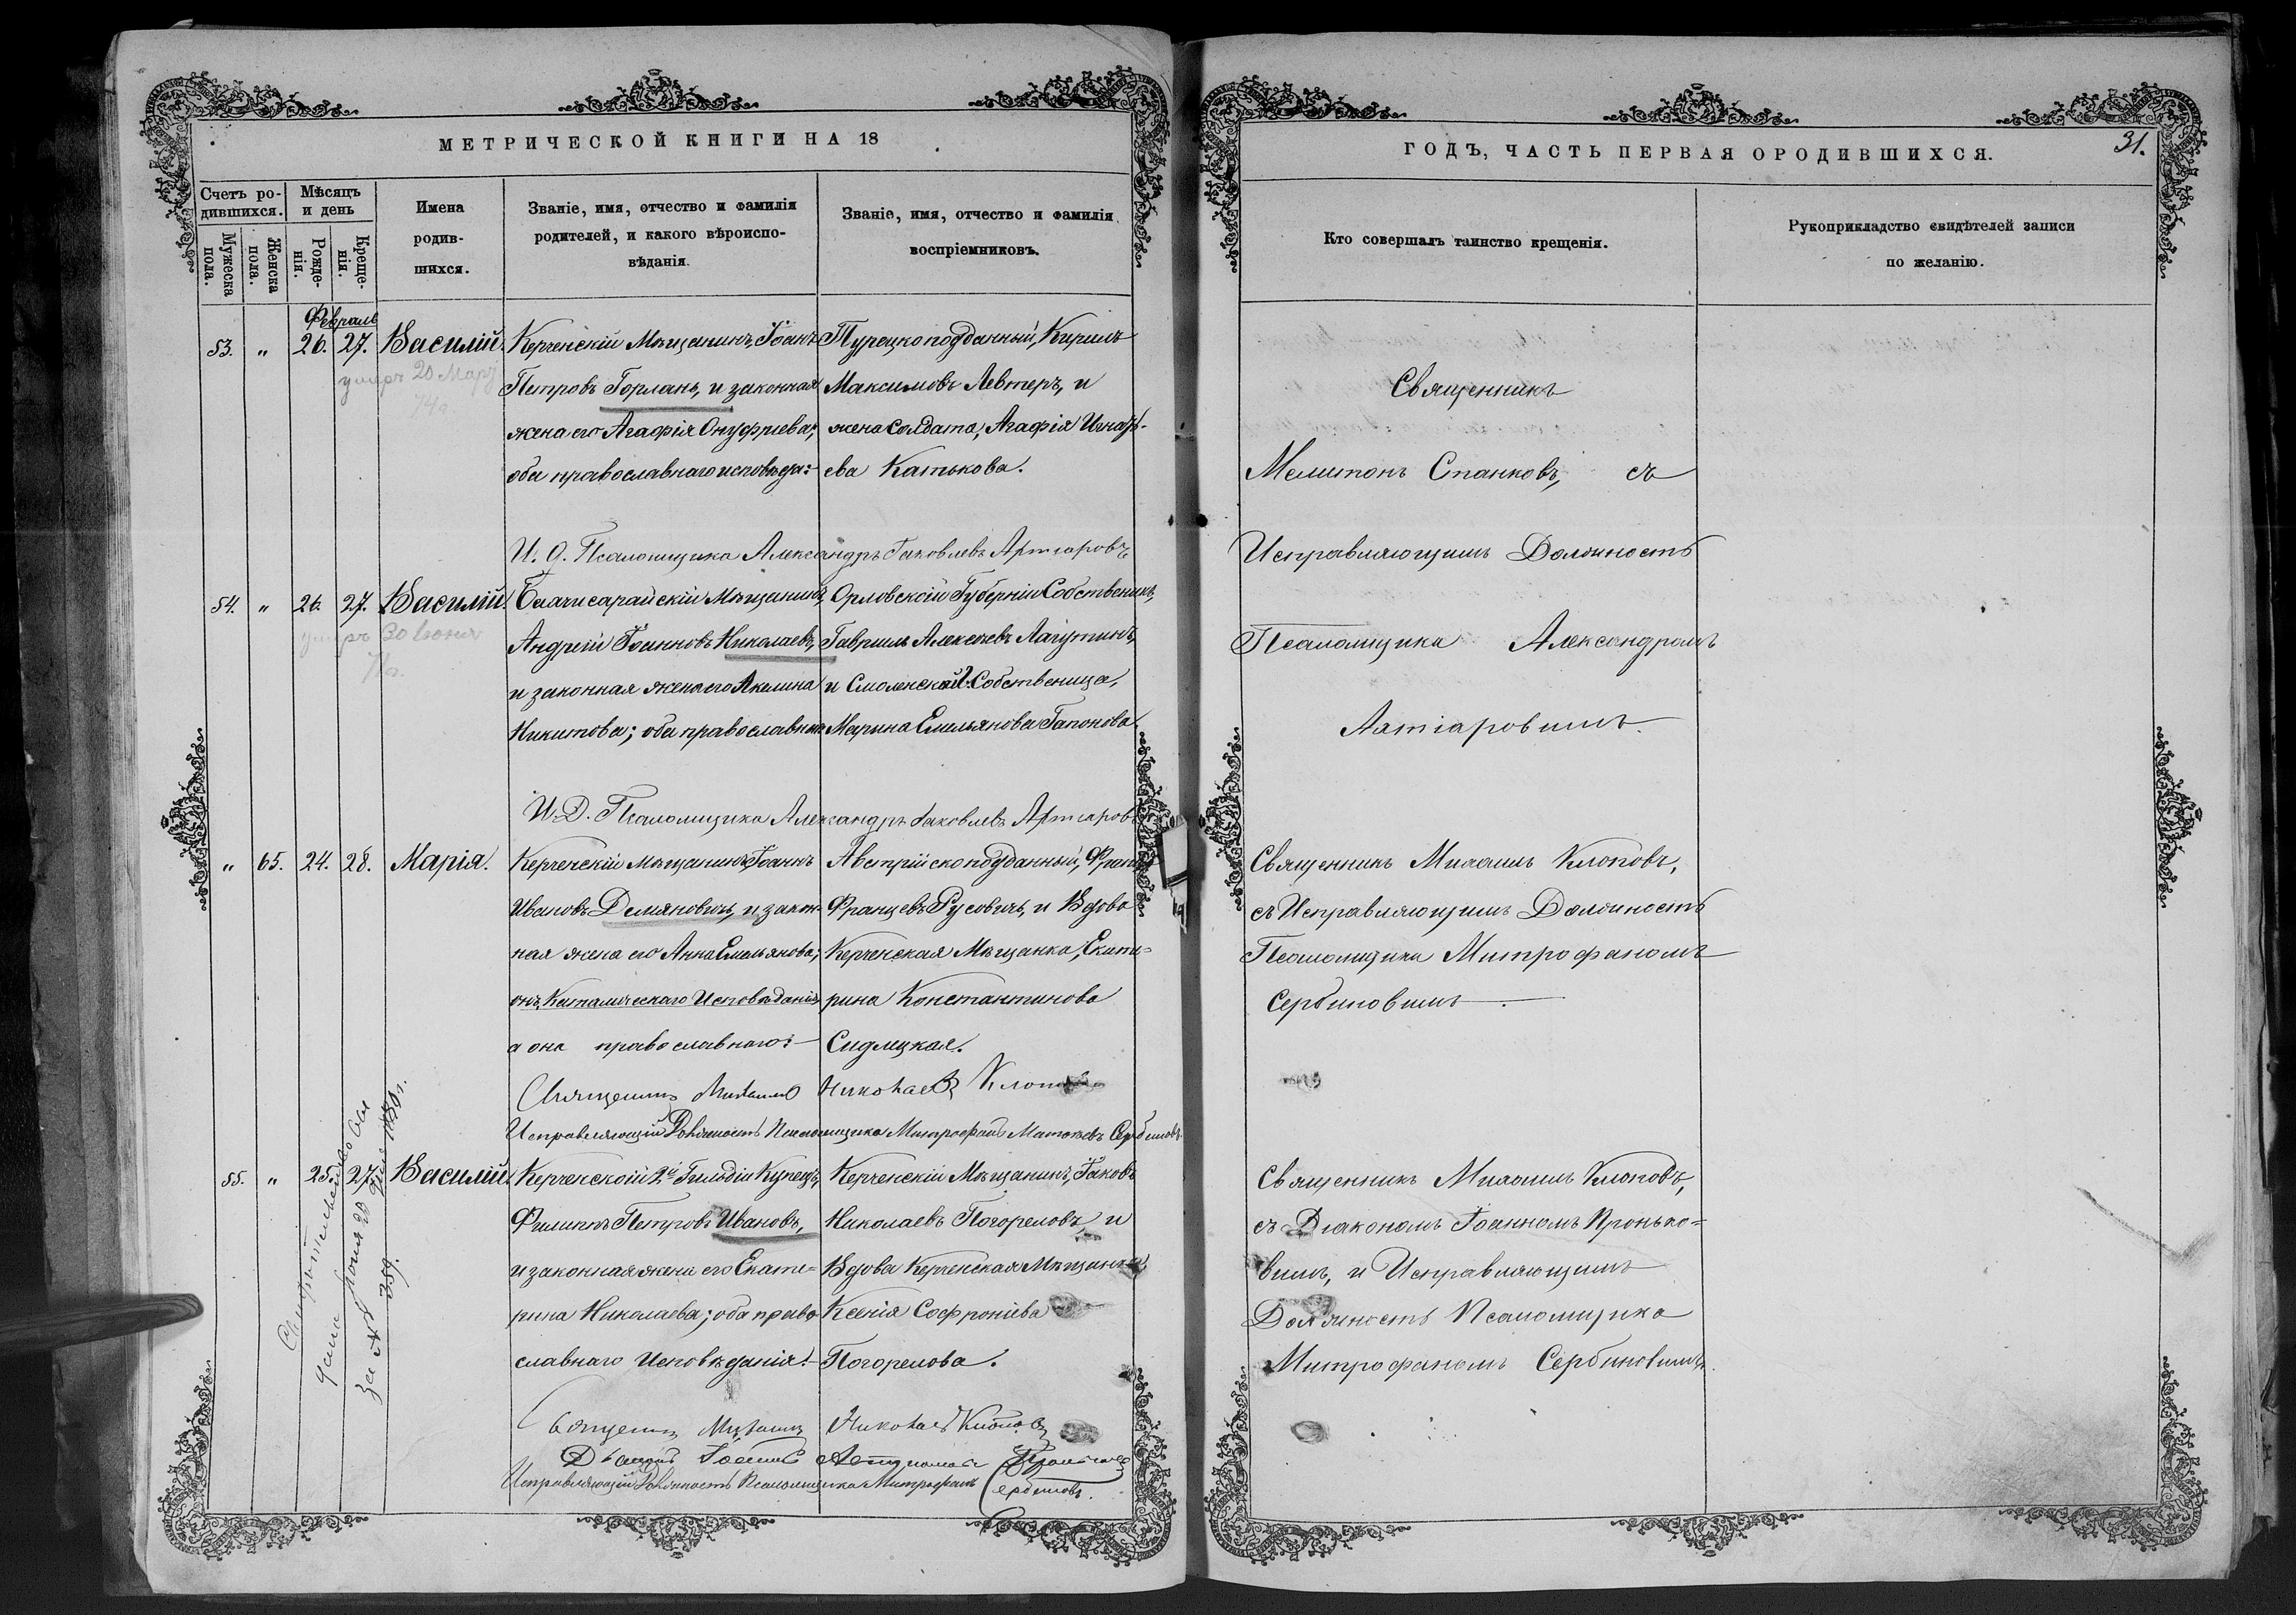 МЕТРИЧЕСКОЙ КНИГИ НА 18
Счетъ ро-
дившихся.
Мужеска
пола.
Женска
пола.
Мѣсяцъ
и день
Рожде-
нія.
Креще-
нія.
Имена
родив-
шихся.
Званіе, имя, отчество и фамилія
родителей, и какого вѣроиспо-
вѣданія.
Званіе, имя, отчество и фамилія
воспріемниковъ.
Февраль
53. " 26. 27. Василій.
умеръ 20 Мар
74
Керченскій Мѣщанинъ, Іоаннъ
Петровъ Горланъ, и законная
жена его Агафія Онуфриева;
оба православнаго исповѣда:
Турецкоподданный, Кирилъ
Максимовъ Левтеръ, и
жена солдата, Агафія Игнать-
ева Катькова.
И. д. Псаломщика Александръ Іаковлевъ
54. " 26. 27. Василій.
умеръ 30 Іюня
Бахчисарайскій Мѣщанинъ,
Андрей Іоанновъ Николаевъ,
и законная жена его Акелина
Никитова; оба православнаго
Орловской Губерніи Собственикъ,
Гавриилъ Алексѣевъ Лагутинъ,
и Смоленской Г. Собственица,
Марина Емельянова Гапонова.
И. Д. Псаломщика Александръ Іаковлевъ
" 65. 24. 28. Марія.
Керченскій Мѣщанинъ, Іоаннъ
Ивановъ Демяновичъ, и закон-
ная жена его Анна Емельянова;
онъ, Католическаго Исповѣданія,
а она православнаго:
Австрійскоподданный, Францъ
Францевъ Русовичъ, и Вдова
Керченская Мѣщанка, Екате-
рина Константинова
Сидлецкая.
Священникъ Михаилъ Николаевъ Клоповъ
Исправляющій Должность Псаломщика Митрофанъ Матвѣевъ Сербиновъ
55. " 25. 27. Василій.
Свидѣтельство сіе
дано Іюня 20 дня 1881 г.
за № 389.
Керченской 2й Гильдіи Купецъ,
Филиппъ Петровъ Ивановъ,
и законная жена его Екате=
рина Николаева; оба право
славнаго Исповѣданія:
Керченскій Мѣщанинъ, Іаковъ
Николаевъ Погореловъ, и
Вдова Керченская Мѣщанка,
Ксенія Софроніева
Погорелова.
Священникъ Михаилъ Николаевъ Клоповъ
Діаконъ Іоаннъ
Исправляющій Должность Псаломщика Митрофанъ Сербиновъ.
ГОДЪ, ЧАСТЬ ПЕРВАЯ О РОДИВШИХСЯ.
31.
Кто совершалъ таинство крещенія.
Рукоприкладство свидѣтелей записи
по желанію.
Священникъ
Мелитонъ Станковъ, съ
Исправляющимъ Должность
Псаломщика Александромъ
Священникъ Михаилъ Клоповъ,
съ Исправляющимъ Должность
Псаломщика Митрофаномъ
Сербиновымъ
Священникъ Михаилъ Клоповъ,
съ Діакономъ Іоанномъ Пронько=
вымъ, и Исправляющимъ
Должность Псаломщика
Митрофаномъ Сербиновымъ.